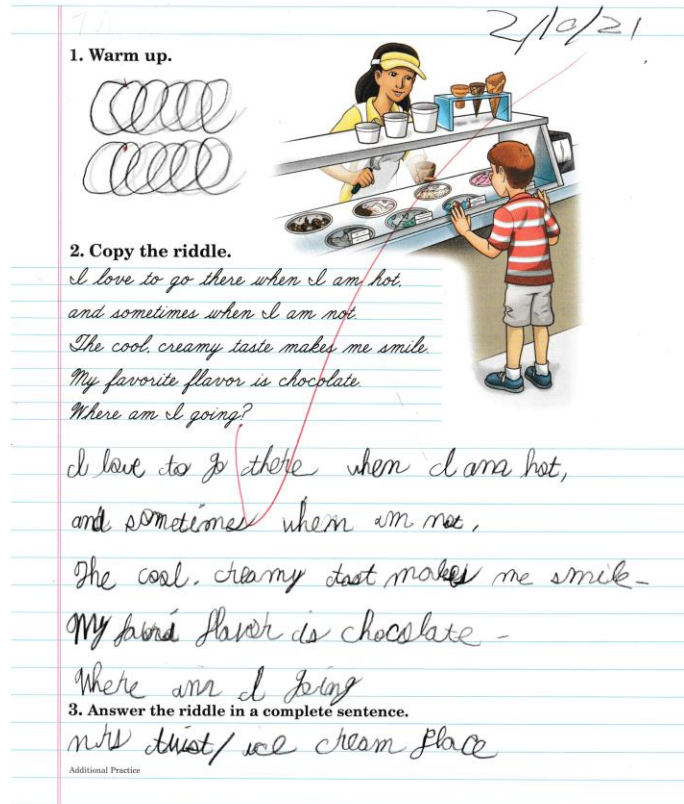 2/10/21
1. Warm up.
2. Copy the riddle.
I love to go there when I am hot,
and sometimes when I am not.
The cool, creamy taste makes me smile.
My favorite flavor is chocolate.
Where am I going?
I love to go there when I ana hot,
and sometimes whem am not,
The cool, creamy tast makes me smile-
My flavor is chocolate -
Where am I going
3. Answer the riddle in a complete sentence.
mrs twist/ ice cream place
Additional Practice